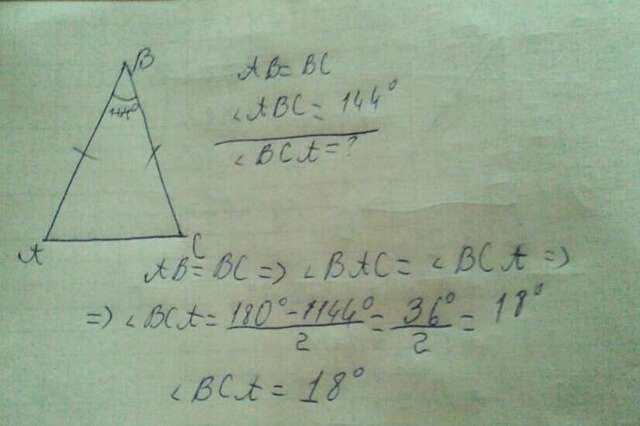 B
144°
A
C
AB = BC
∠ABC = 144°
∠BCA = ?
AB = BC => ∠BAC = ∠BCA =>
=> ∠BCA = 180° - 1144° / 2 = 36° / 2 = 18°
∠BCA = 18°